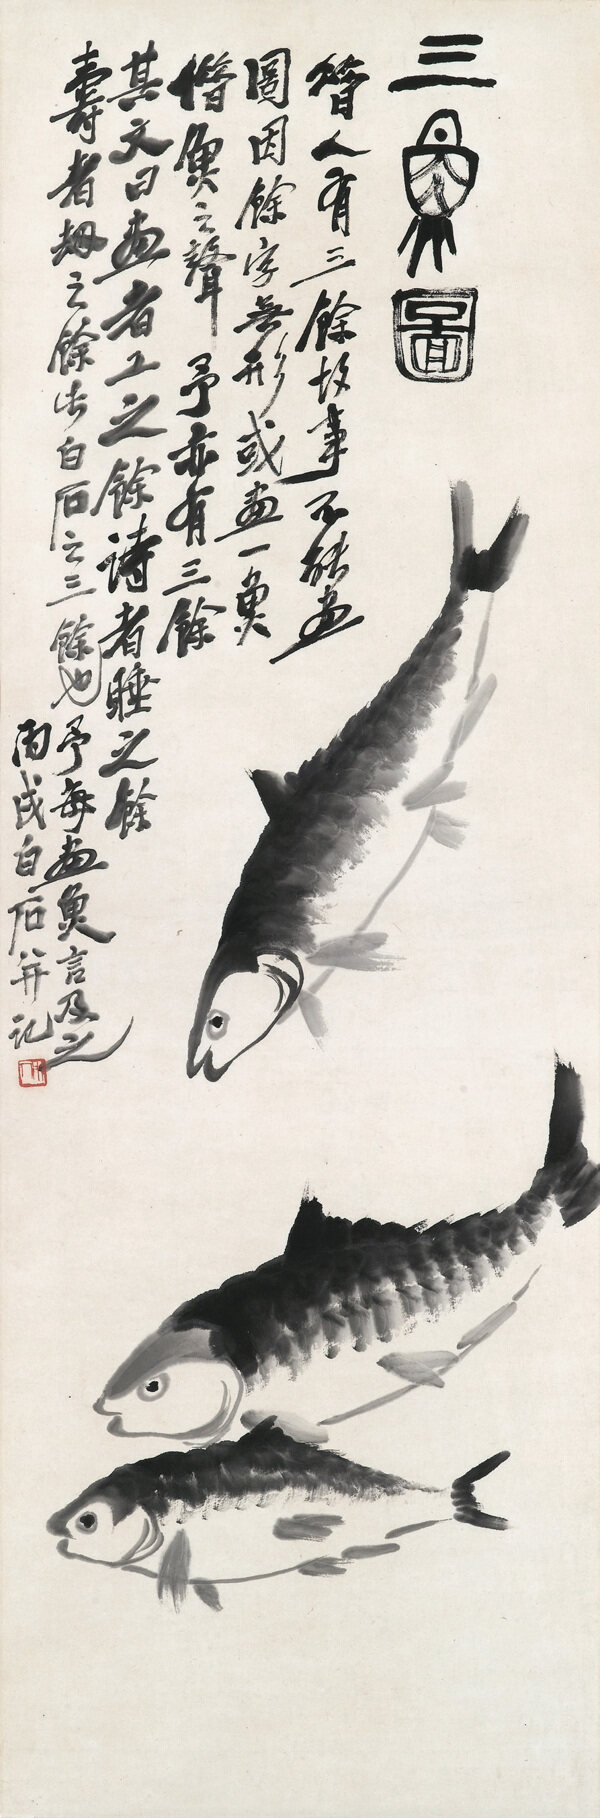 三魚圖
昔人有三餘故事不能畫
圖因餘字無形或畫一魚
借魚之聲 予亦有三餘
其文曰畫者工之餘詩者睡之餘
壽者劫之餘此白石之三餘也予每畫魚言及之
丙戌白石并記